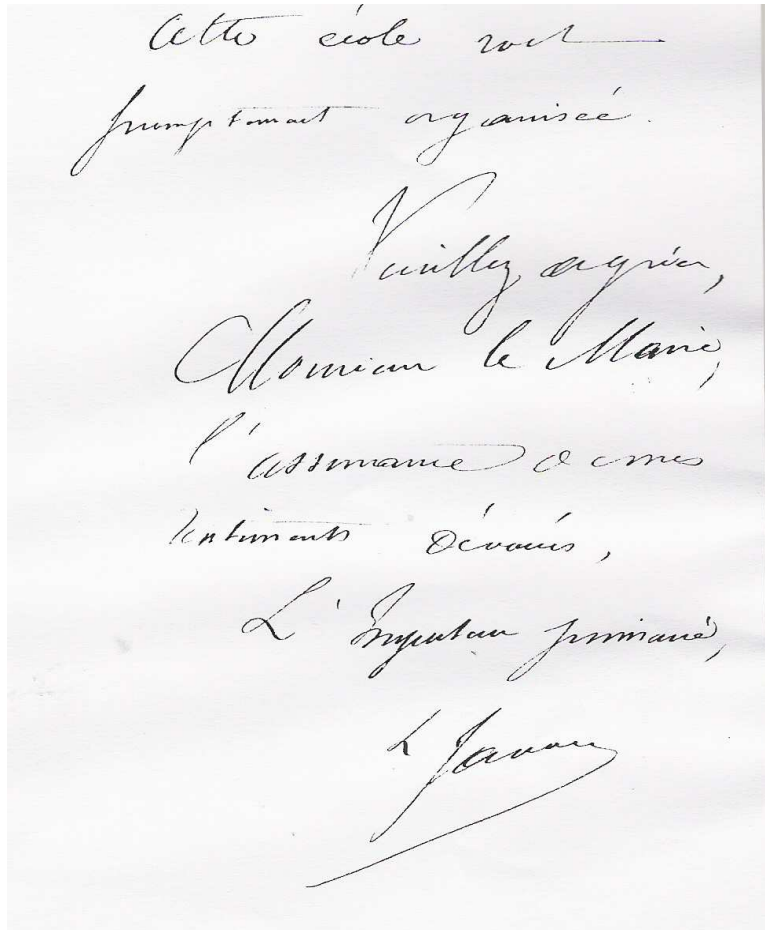 Cette école soit
promptement organisée.
Veuillez agréer,
Monsieur le Maire,
l'assurance de mes
sentiments dévoués,
L'Inspecteur primaire,
L